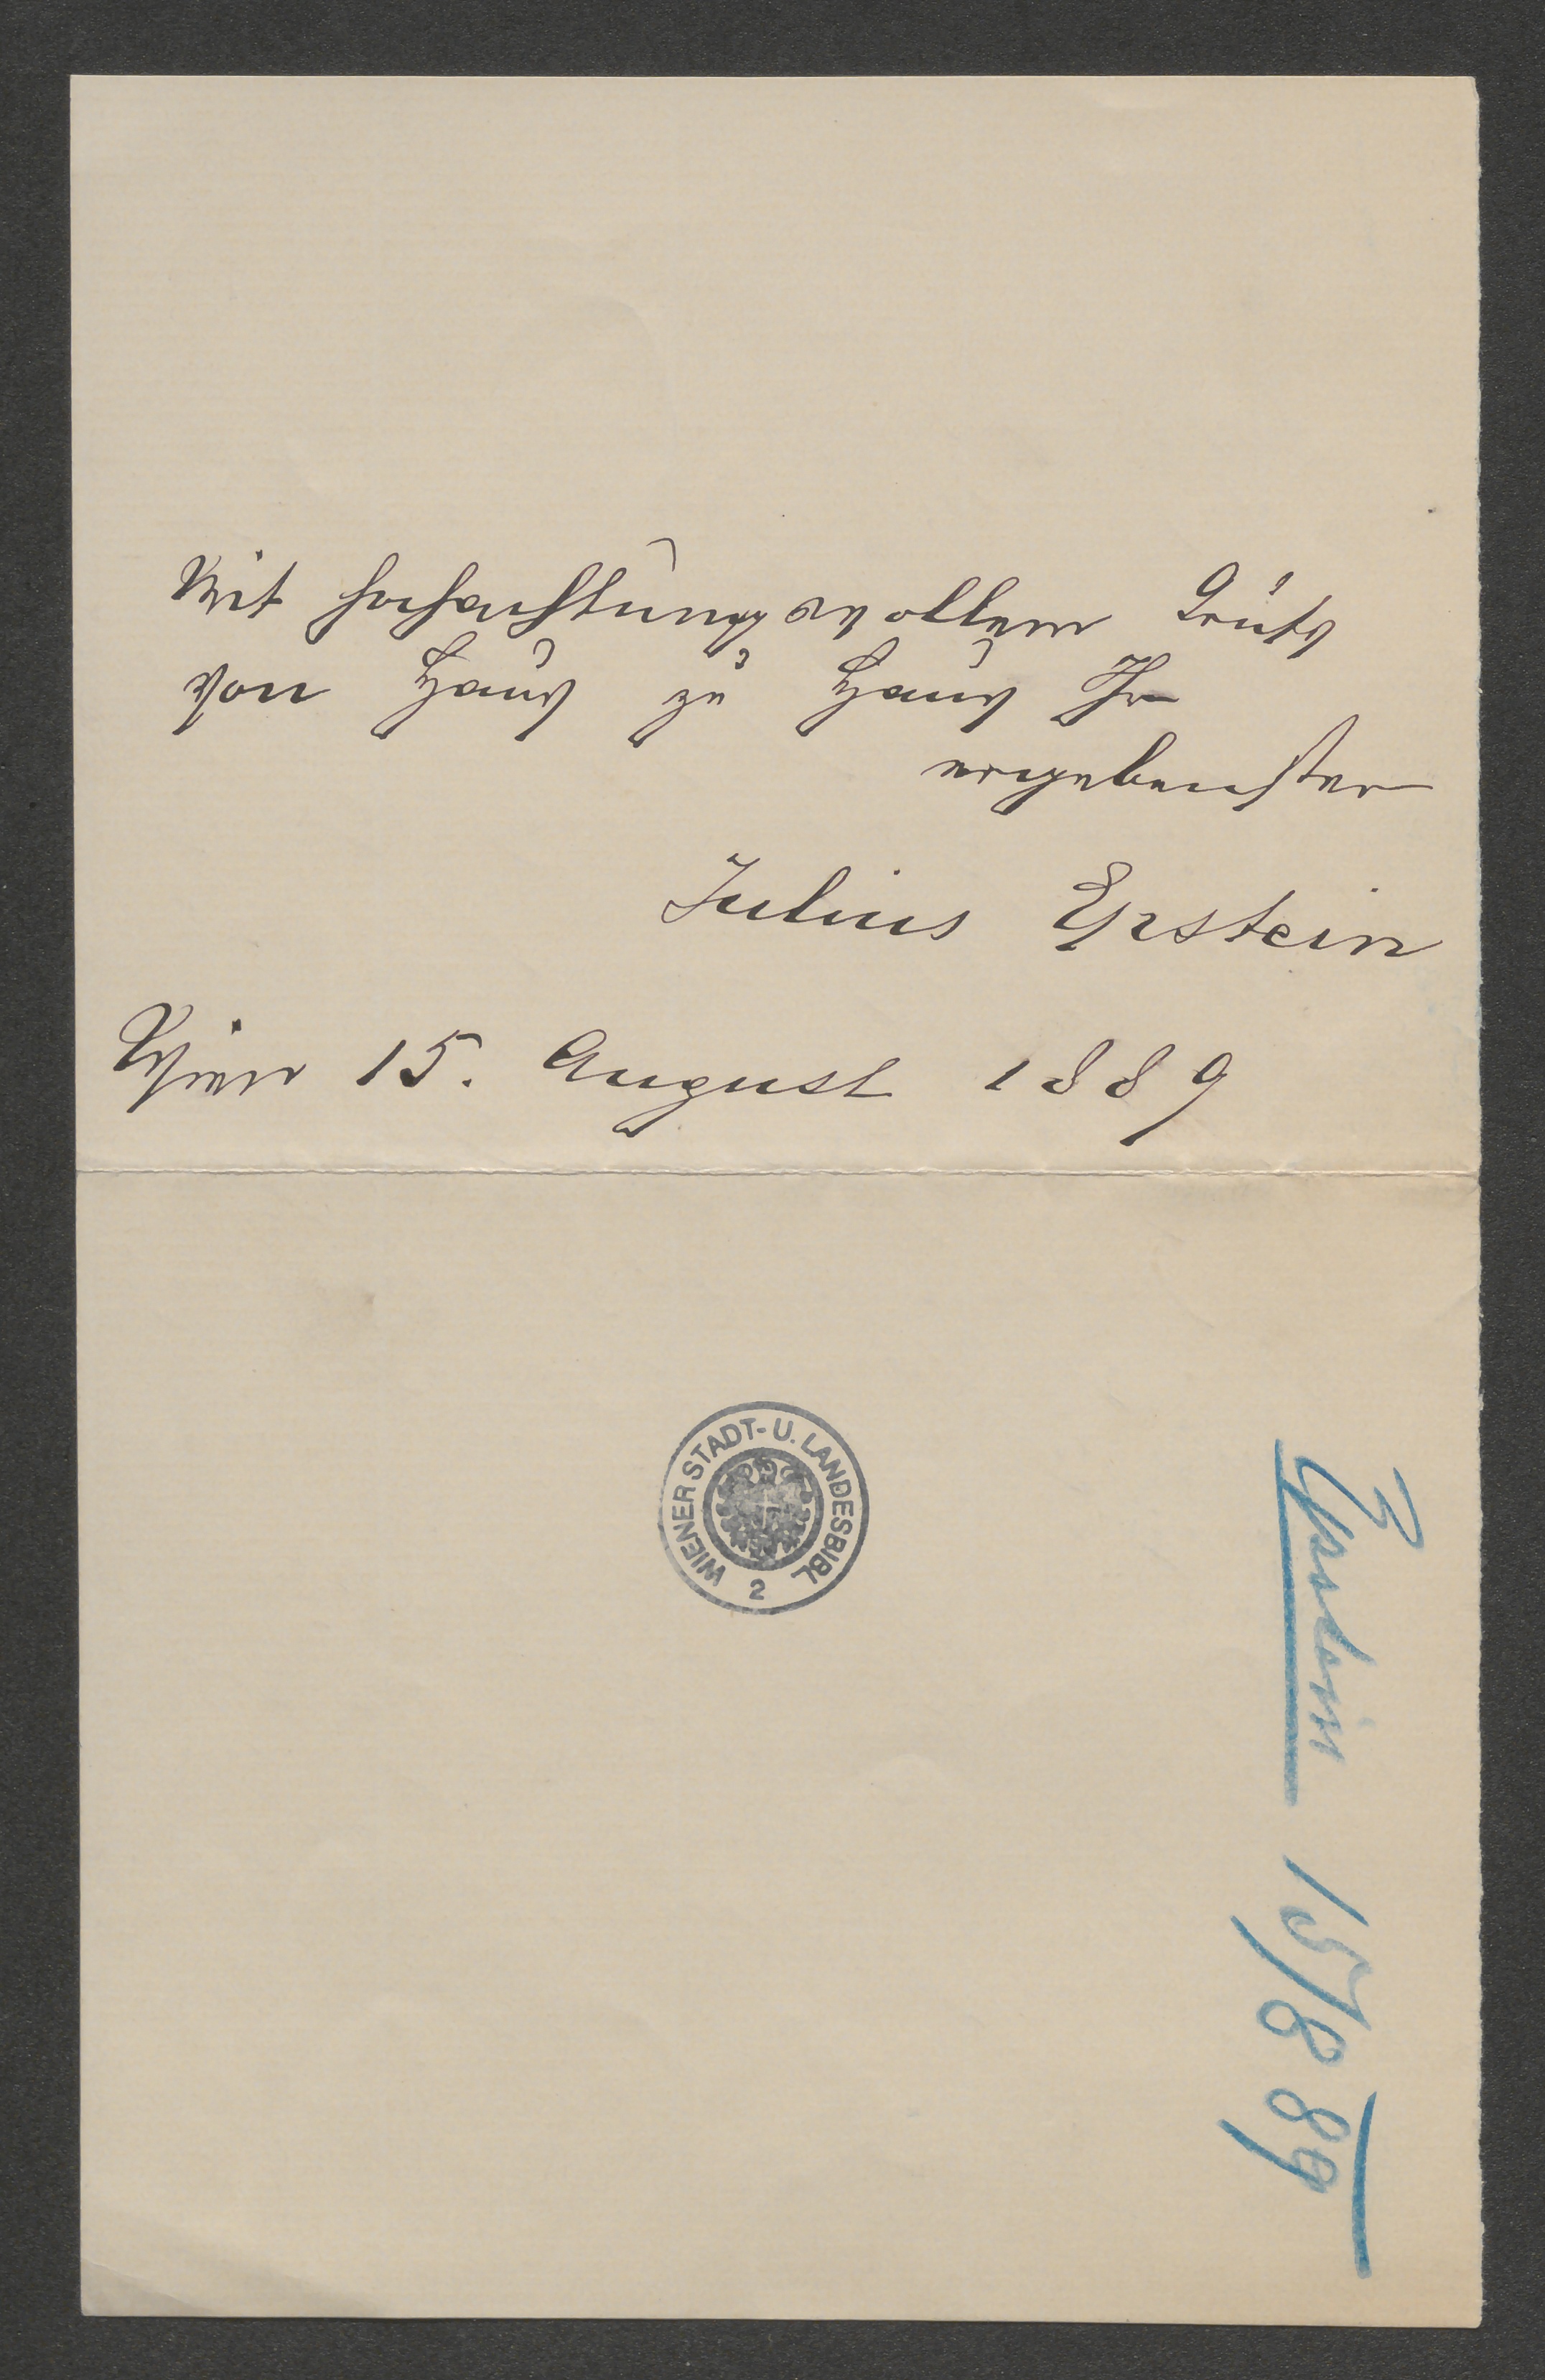 Mit hochachtungsvollem Gruß
von Haus zu Haus Ihr
ergebenster
Julius Epstein
Wien 15. August 1889
WIENER STADT- U. LANDESBIBL.
2
Epstein 15/8 89